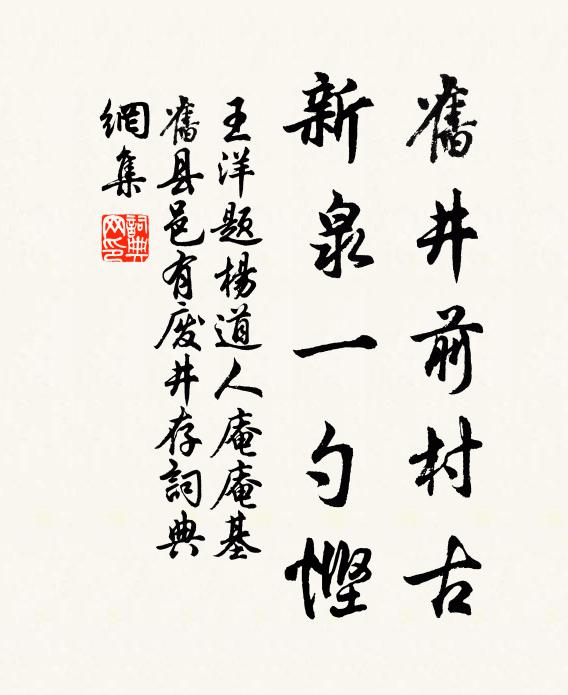 舊井前村古
新泉一勺慳
王洋题楊道人庵庵基
舊县邑有废井存詞典
網集
詞典網印